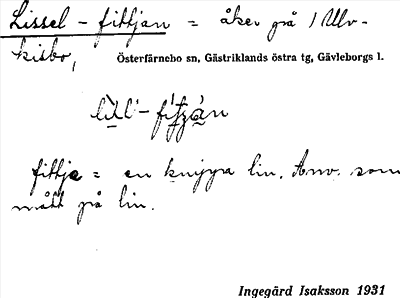 Lissel-fittjan = åker på / Ulv-
kisbo,
Österfärnebo sn, Gästriklands östra tg, Gävleborgs l.
fittja = en knippa lin. Anv. som
mått på lin.
Ingegärd Isaksson 1931